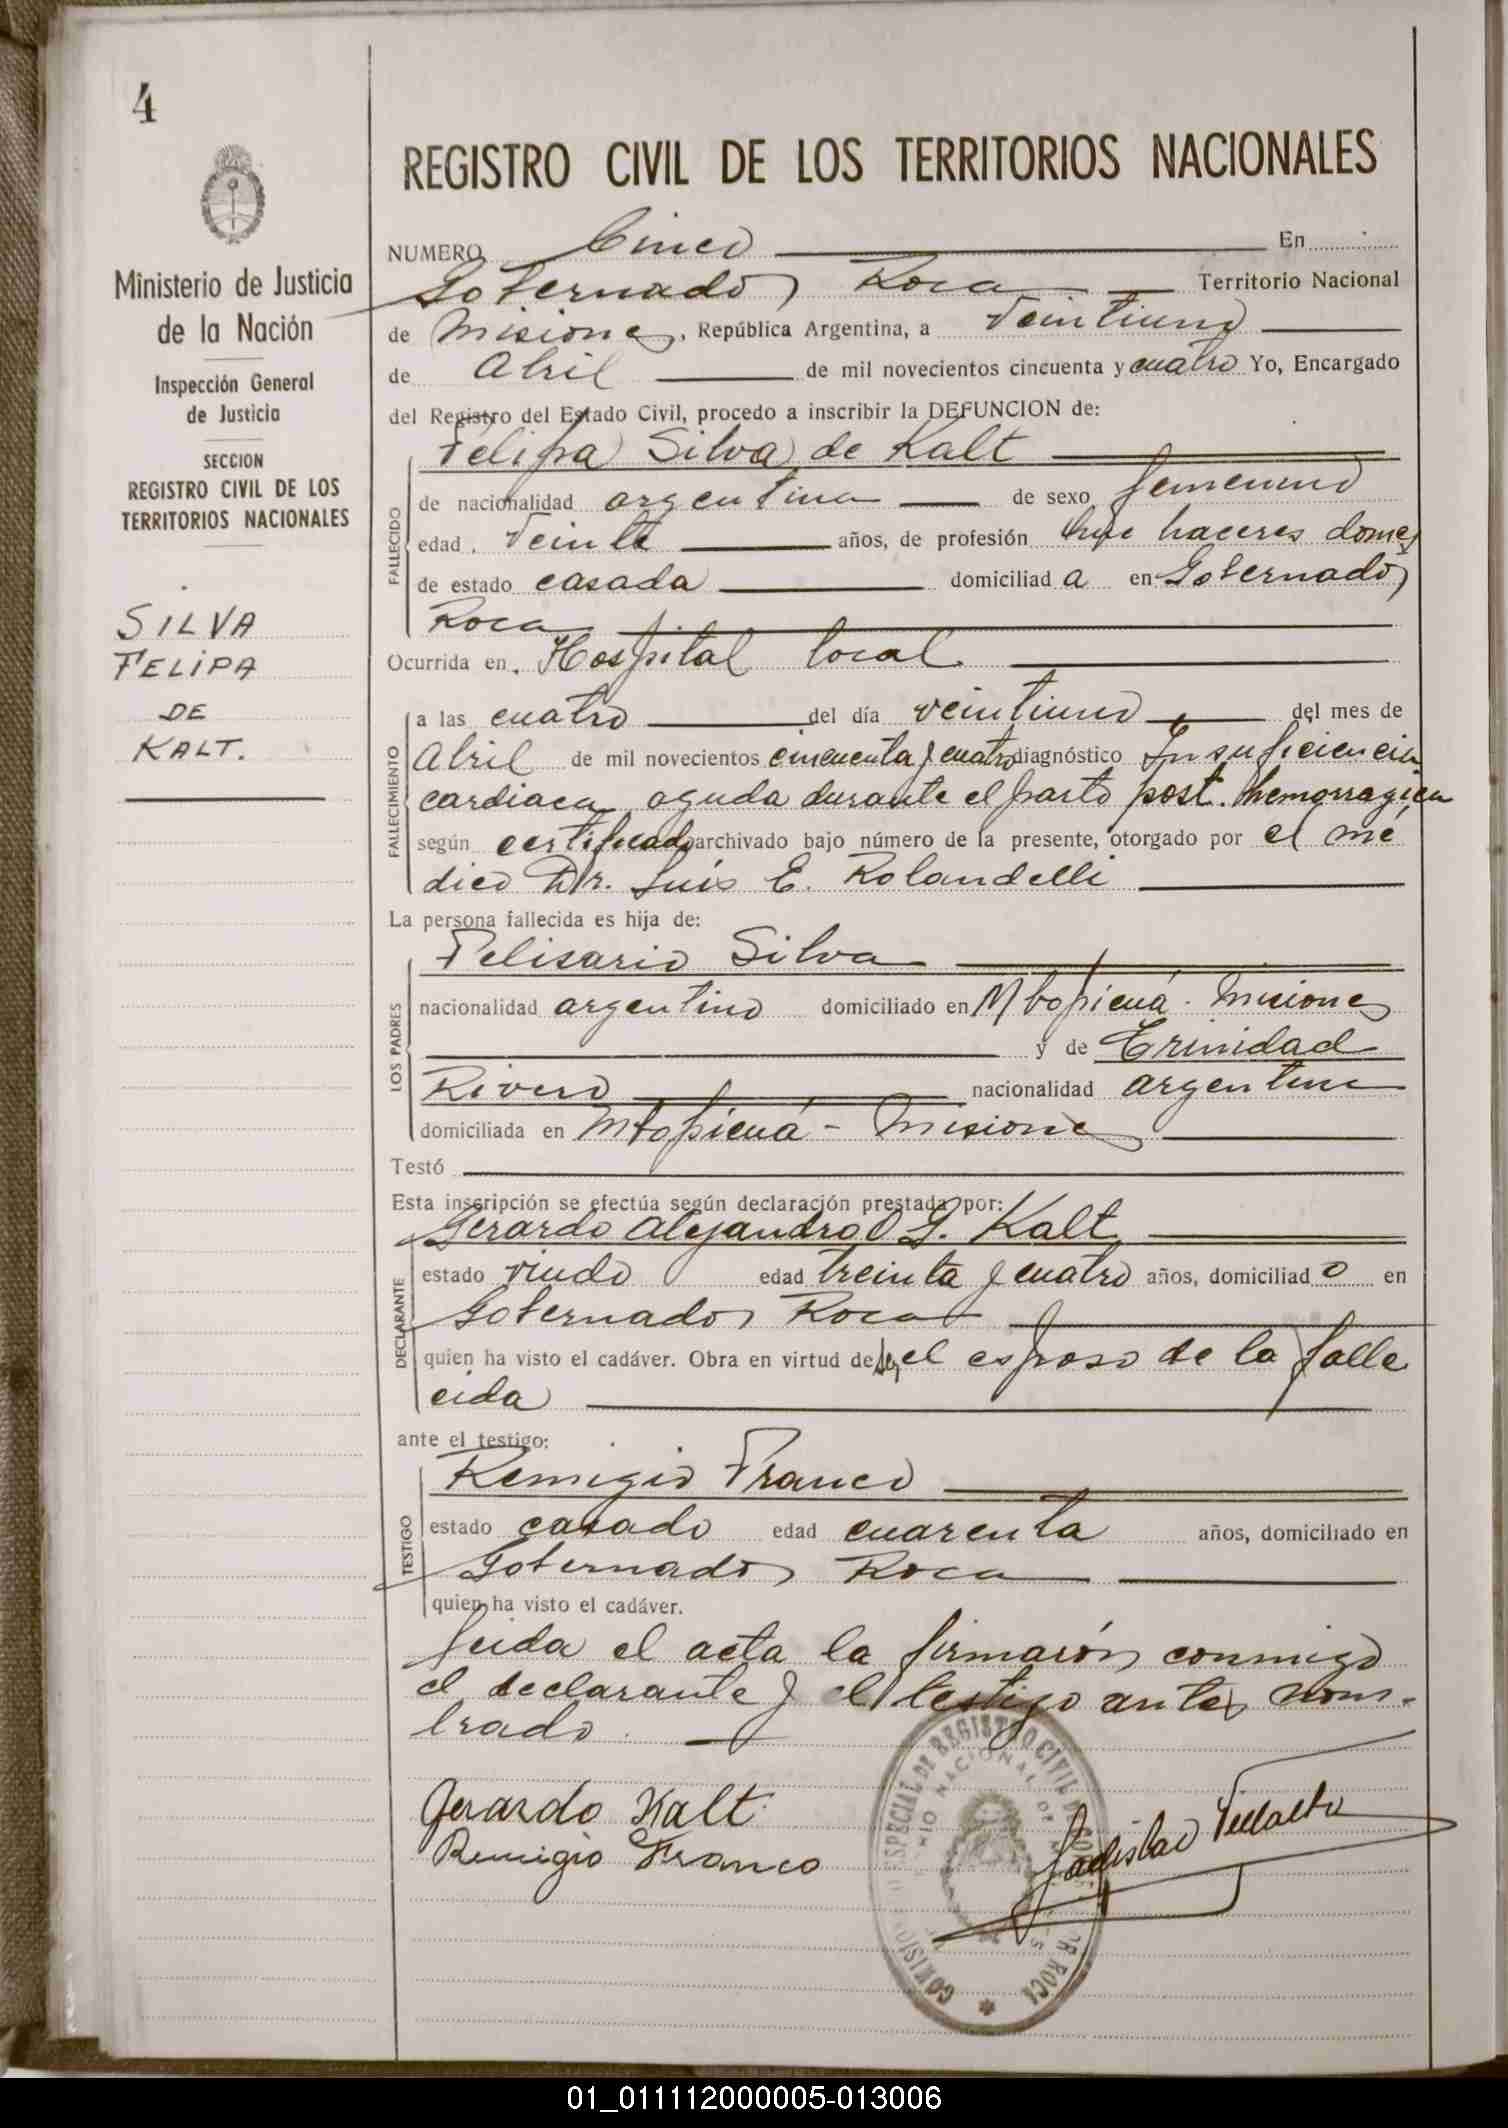 4
Ministerio de Justicia
de la Nación
Inspección General
de Justicia
SECCION
REGISTRO CIVIL DE LOS
TERRITORIOS NACIONALES
SILVA
FELIPA
DE
KALT.
REGISTRO CIVIL DE LOS TERRITORIOS NACIONALES
NUMERO Cinco En
Gobernador Roca Territorio Nacional
de Misiones, República Argentina, a veintiuno
de Abril de mil novecientos cincuenta y cuatro Yo, Encargado
del Registro del Estado Civil, procedo a inscribir la DEFUNCION de:
Felipa Silva de Kalt
FALLECIDO
de nacionalidad argentina de sexo femenino
edad veinte años, de profesión haceres domes
de estado casada domiciliad a en Gobernador
Roca
Ocurrida en Hospital local
FALLECIMIENTO
a las cuatro del día veintiuno del mes de
Abril de mil novecientos cincuenta y cuatro diagnóstico Insuficiencia
cardiaca aguda durante el parto post. hemorragica
según certificado archivado bajo número de la presente, otorgado por el mé
dico Dr. Luis E. Rolandelli
La persona fallecida es hija de:
LOS PADRES
Felisario Silva
nacionalidad argentino domiciliado en Mbopicuá - Misiones
y de Trinidad
Rivero nacionalidad argentina
domiciliada en Mbopicuá - Misiones
Testó
Esta inscripción se efectúa según declaración prestada por:
DECLARANTE
Gerardo Alejandro G. Kalt
estado viudo edad treinta y cuatro años, domiciliad o en
Gobernador Roca
quien ha visto el cadáver. Obra en virtud de ser el esposo de la falle
cida
ante el testigo:
TESTIGO
Remigio Franco
estado casado edad cuarenta años, domiciliado en
Gobernador Roca
quien ha visto el cadáver.
Leida el acta la firmarón conmigo
el declarante y el testigo antes nom-
brado.
Gerardo Kalt
Remigio Franco
Ladislao Villalba
01_011112000005-013006